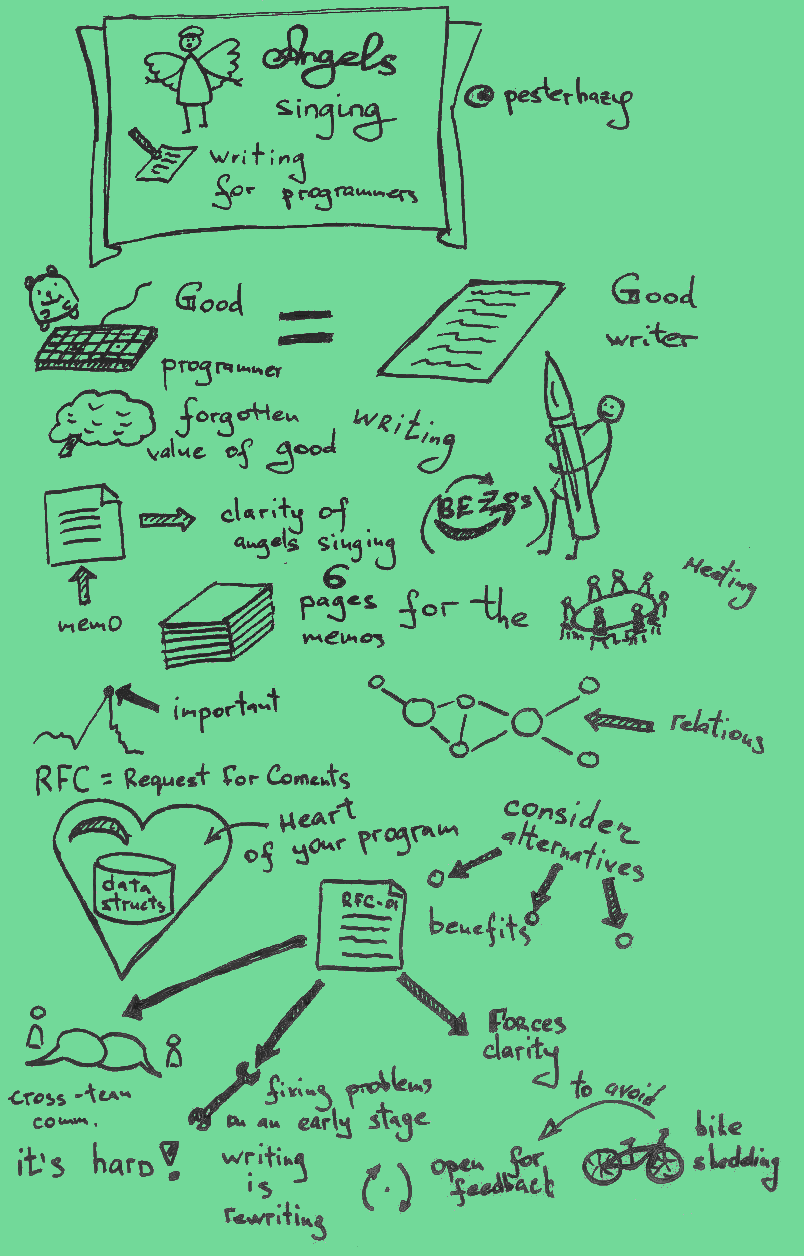 Angels
singing
@pesterhazy
writing
for programmers
Good
programmer
=
Good
writer
forgotten
value of good
writing
clarity of
angels singing
(BEZOS)
memo
6
pages
memos
for the
Meeting
important
relations
RFC = Request for Coments
Heart
of your program
data
structs
consider
alternatives
RFC-01
benefits
Forces
clarity
cross-team
comm.
fixing problems
on an early stage
to avoid
bike
shedding
it's hard!
writing
is
rewriting
open for
feedback